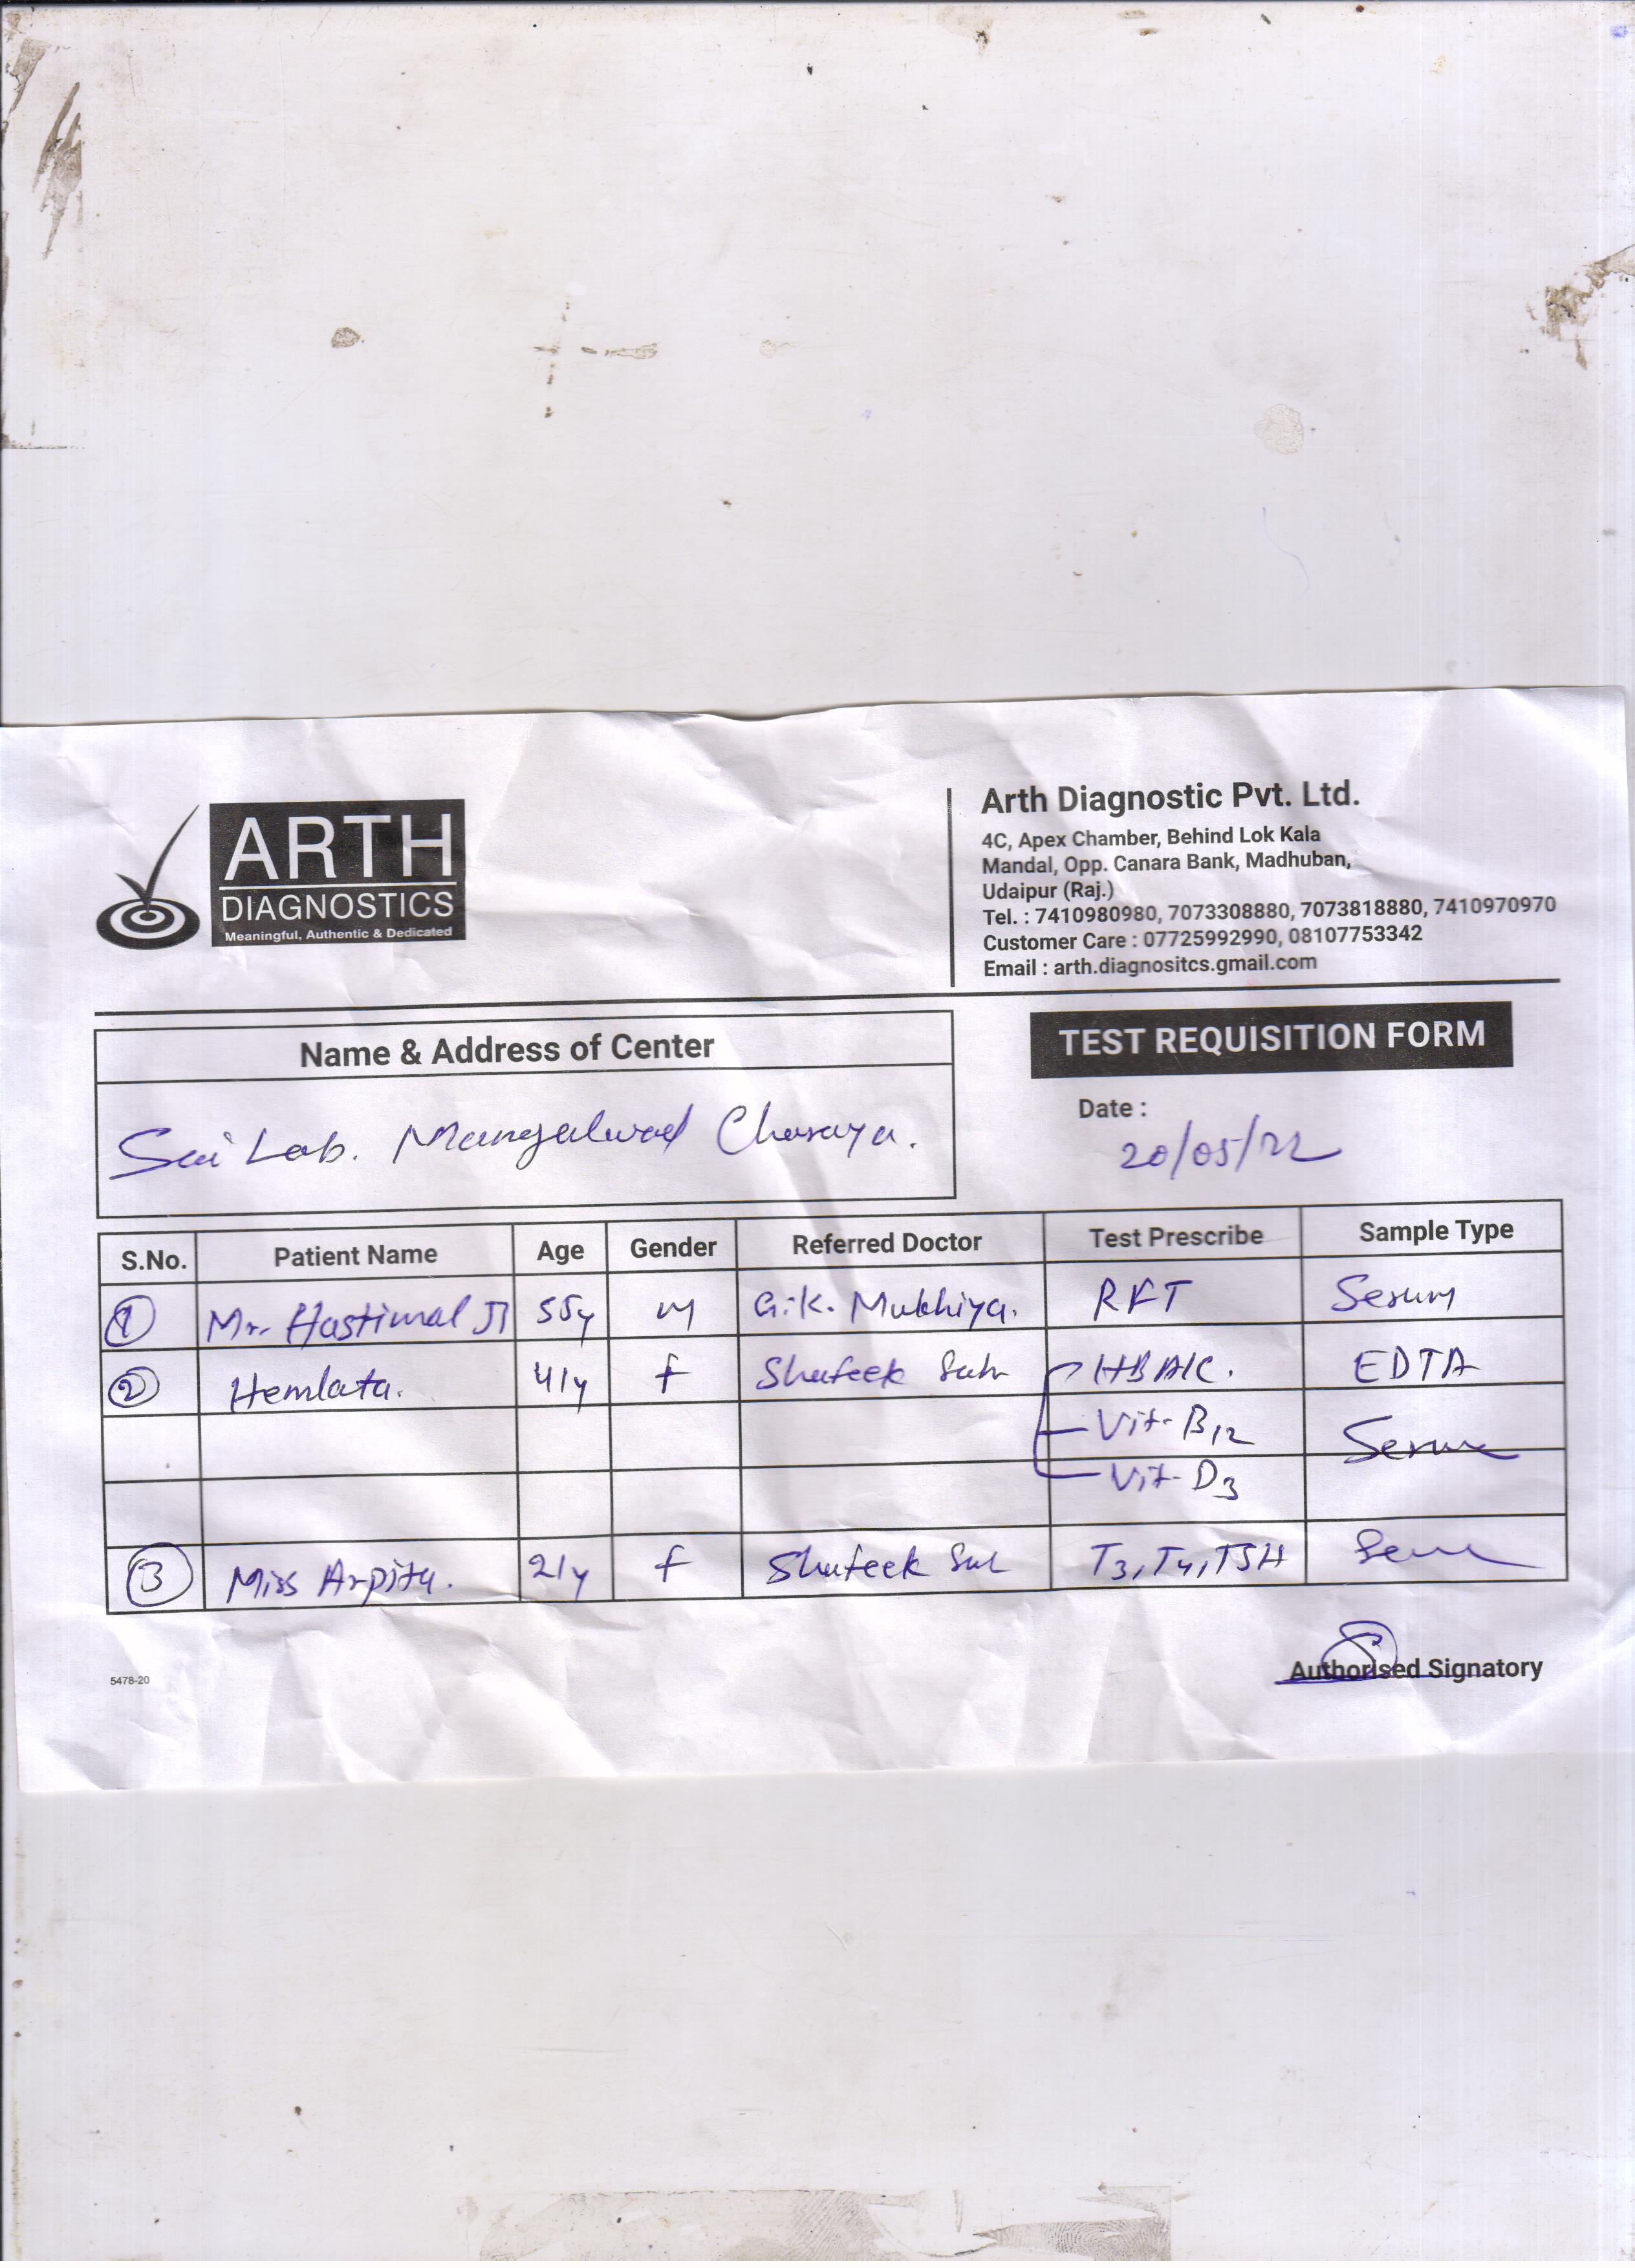 ARTH
DIAGNOSTICS
Meaningful, Authentic & Dedicated
Arth Diagnostic Pvt. Ltd.
4C, Apex Chamber, Behind Lok Kala
Mandal, Opp. Canara Bank, Madhuban,
Udaipur (Raj.)
Tel. : 7410980980, 7073308880, 7073818880, 7410970970
Customer Care : 07725992990, 08107753342
Email : arth.diagnositcs.gmail.com
Name & Address of Center
Sai Lab. Mangalwad
TEST REQUISITION FORM
Date :
20/05/22
S.No. Patient Name Age Gender Referred Doctor Test Prescribe Sample Type
1 Mr. Hastimal JI 55y M G.K. Mukhiya. RFT Serum
2 Hemlata. 41y F Shafeek HBA1C. EDTA
Vit-B12 Serum
Vit-D3
3 Miss Arpita. 21y F Shafeek T3, T4, TSH Serum
Authorised Signatory
5478-20